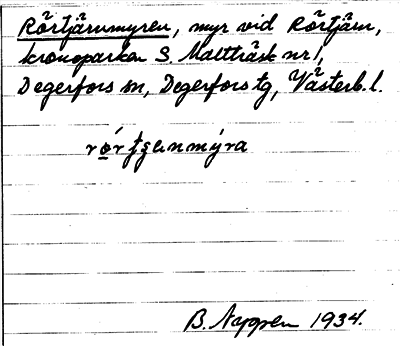 Rörtjärnmyren, myr vid Rörtjärn,
kronoparken S. Maltträsk nr 1,
Degerfors sn, Degerfors tg, Västerb. l.
1934.